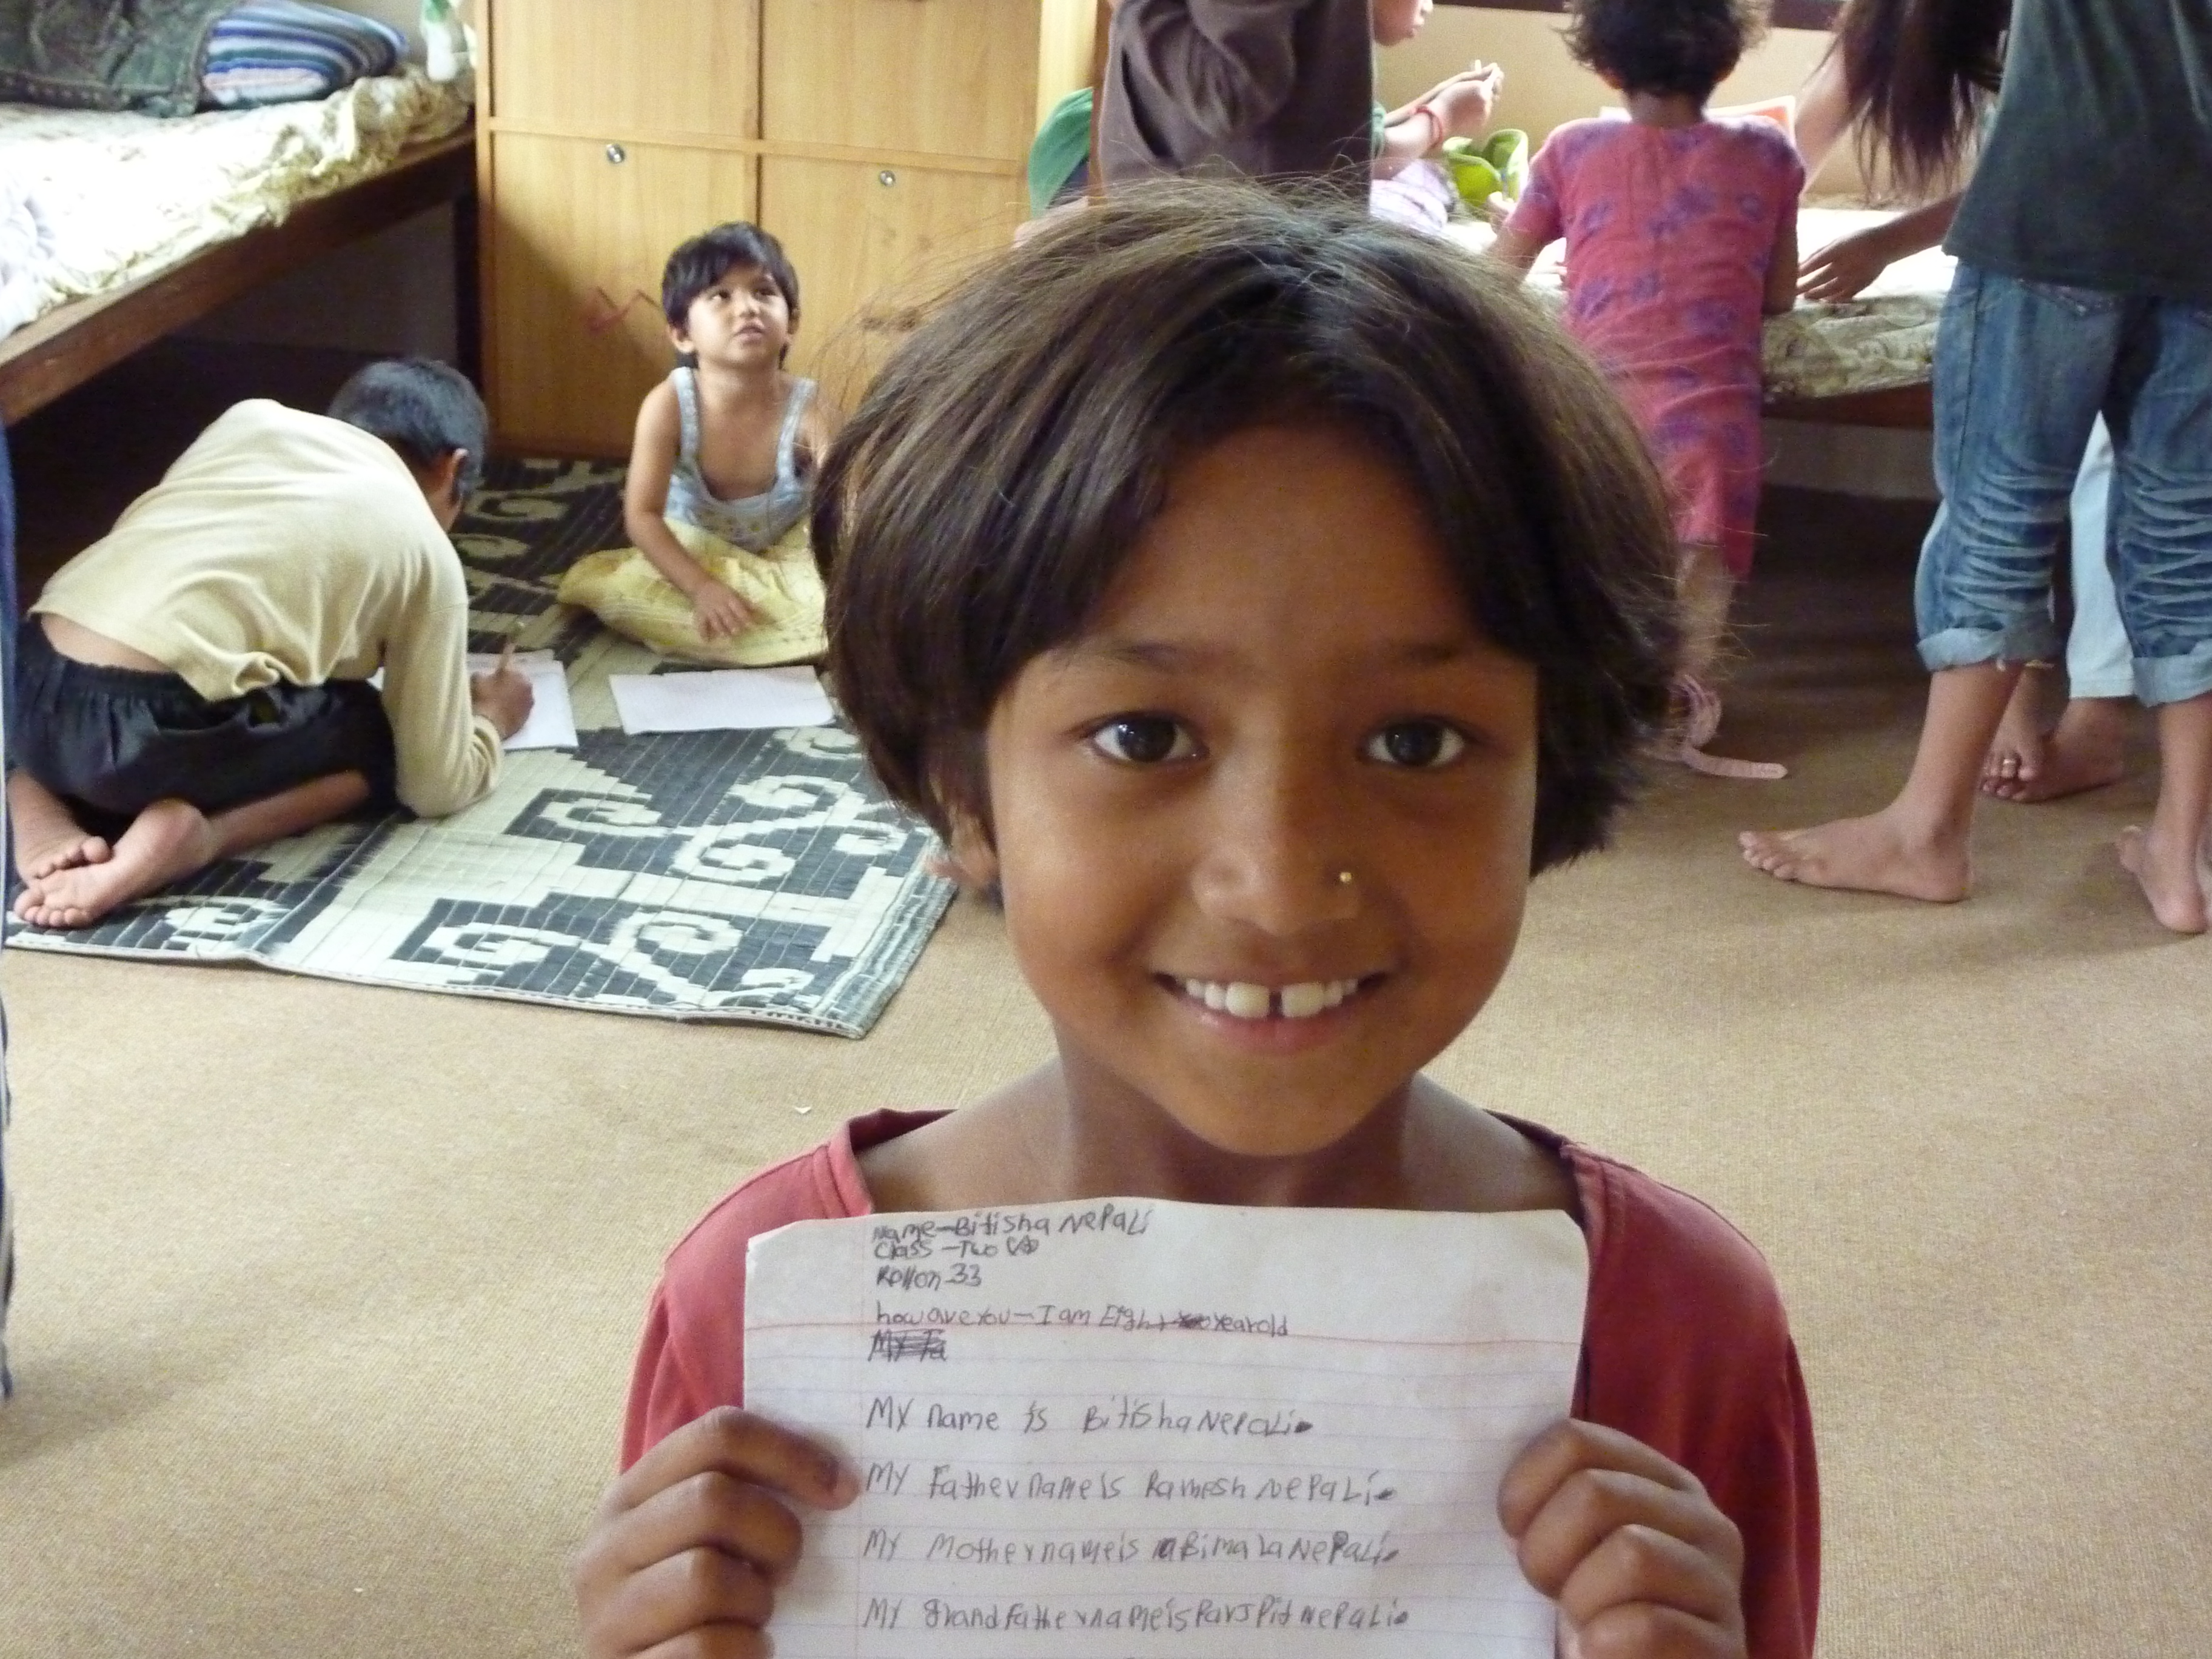 Name-Bitisha Nepali
Class -Two
Rollon 33
how are you-I am Eight year old
My Fa
My name is Bitisha Nepali.
My Father name is Ramesh Nepali.
My Mother name is Bimala Nepali.
My grand father name is Nepali.